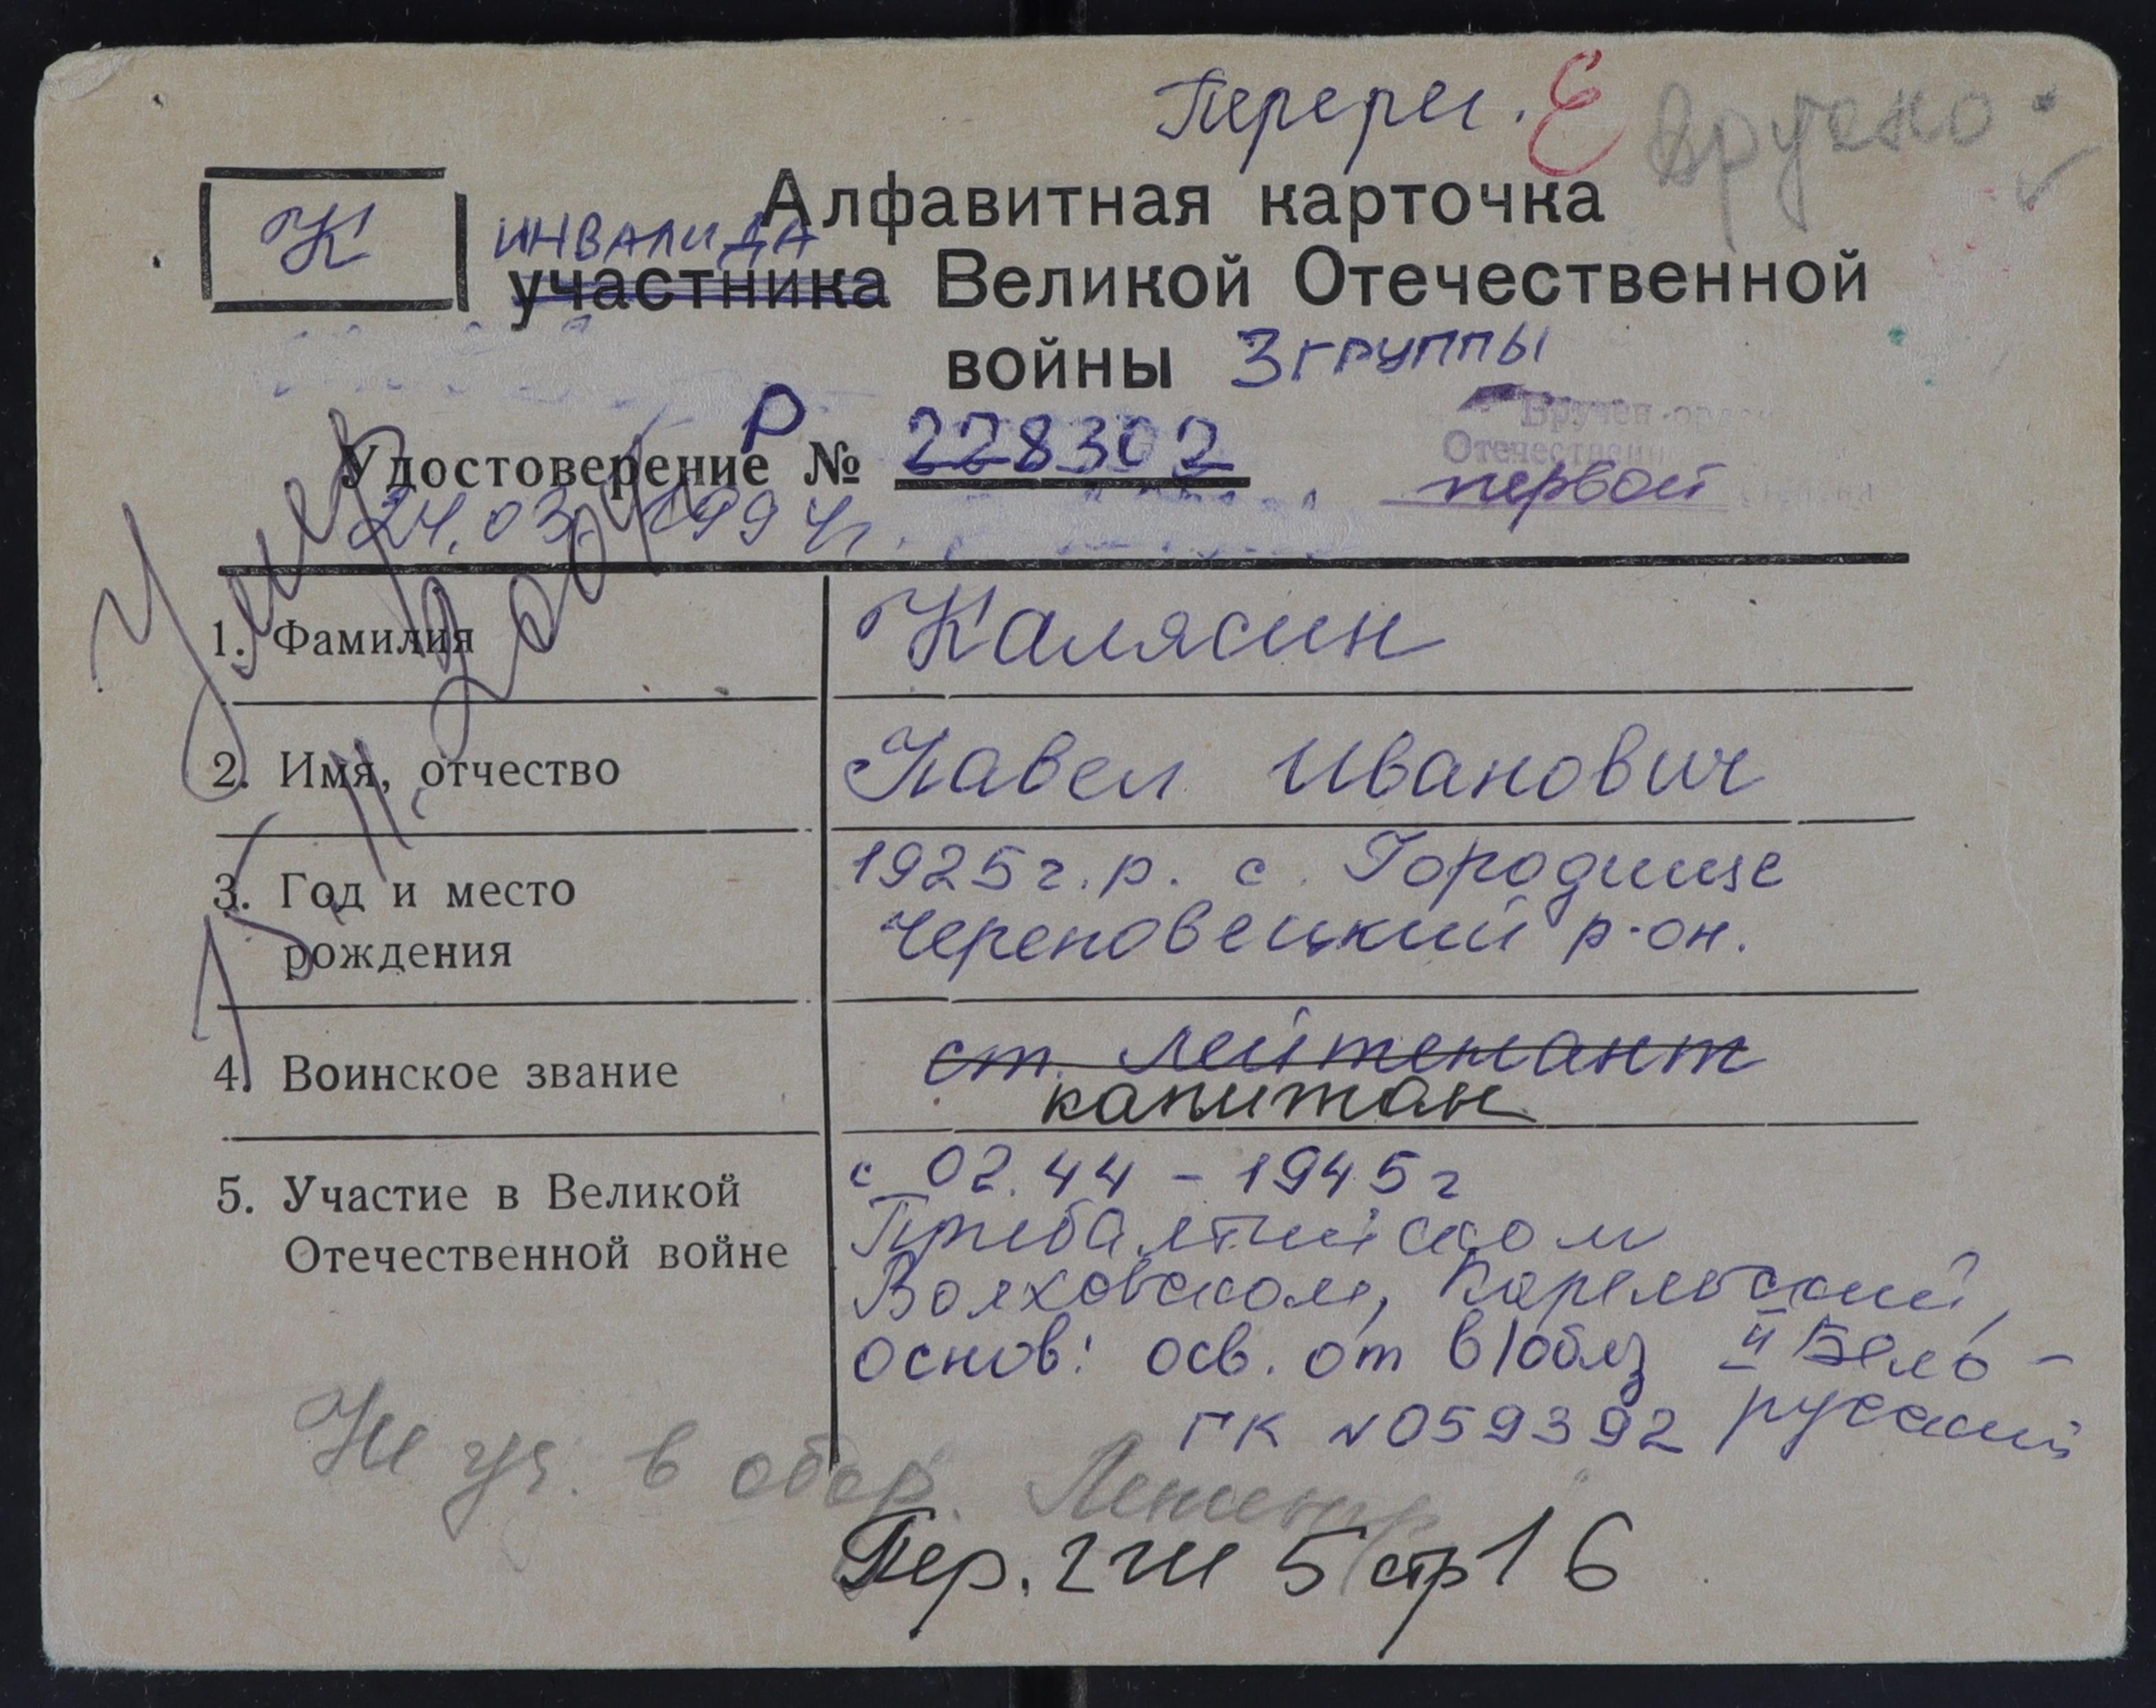 Перерег. Е Вручено
К
Алфавитная карточка
ИНВАЛИДА
участника Великой Отечественной
войны 3 группы
Вручен орден
Отечественной
первой
Р
Удостоверение № 228302
24.03.1994г.
Умер
1. Фамилия Калясин
2. Имя, отчество Павел Иванович
3. Год и место рождения 1925 г.р. с. Городище
Череповецкий р-он.
4. Воинское звание ст. лейтенант
капитан
5. Участие в Великой
Отечественной войне
с 02.44 - 1945г
Прибалтийском
Волховском, Карельский,
основ: осв. от в/обяз II Бело-
русский
ГК №059392
Не уч. в обор. Ленингр
Пер. 2 гл 5 стр 16